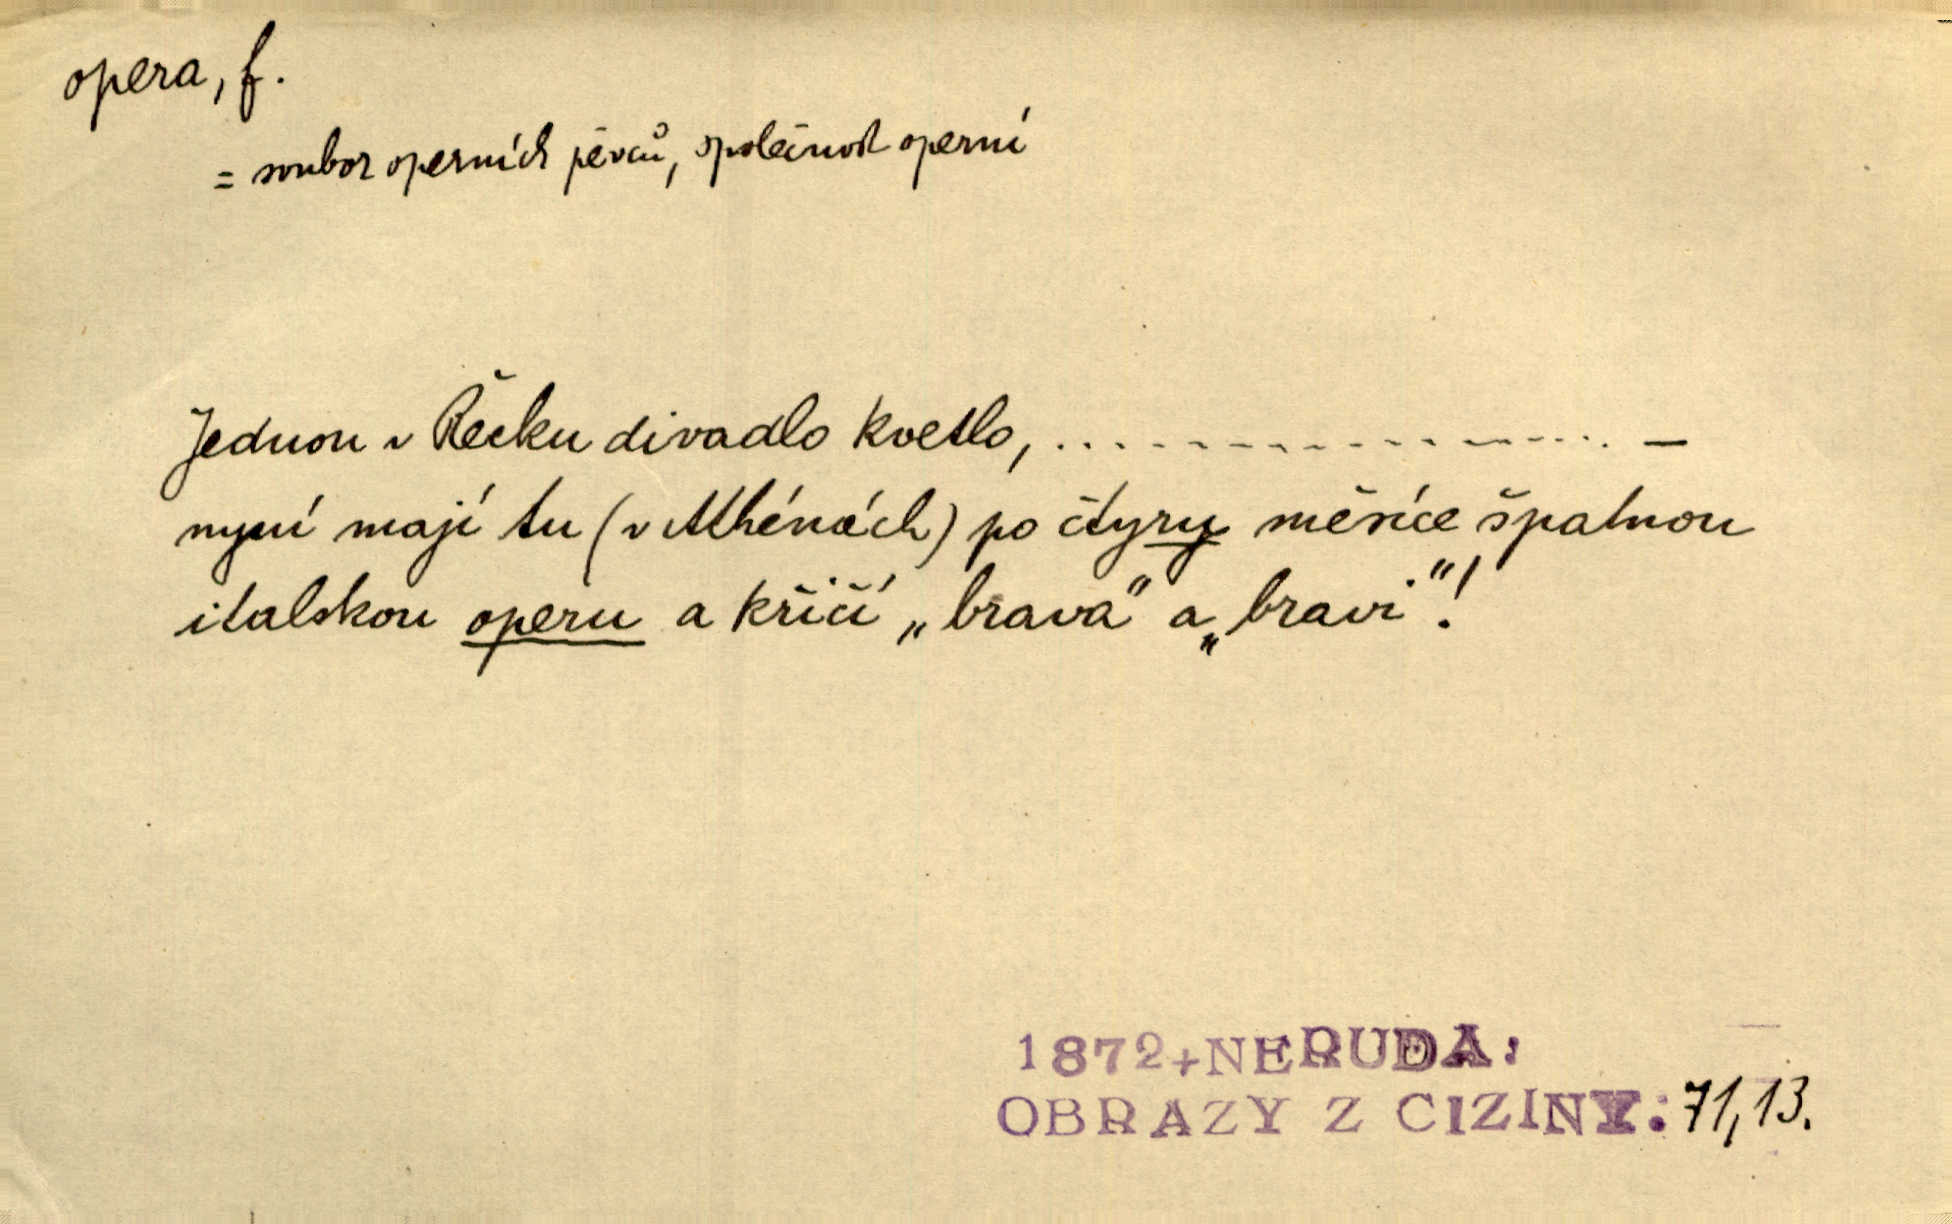 opera, f.
= soubor operních pěvců, společnost operní
Jednou v Řecku divadlo kvetlo, . . . . . . . . . . . . . . . . . . . —
nyní mají tu (v Athénách) po čtyry měsíce špatnou
italskou operu a křičí „brava“ a „bravi“!
1872+NERUDA:
OBRAZY Z CIZINY: 71,13.